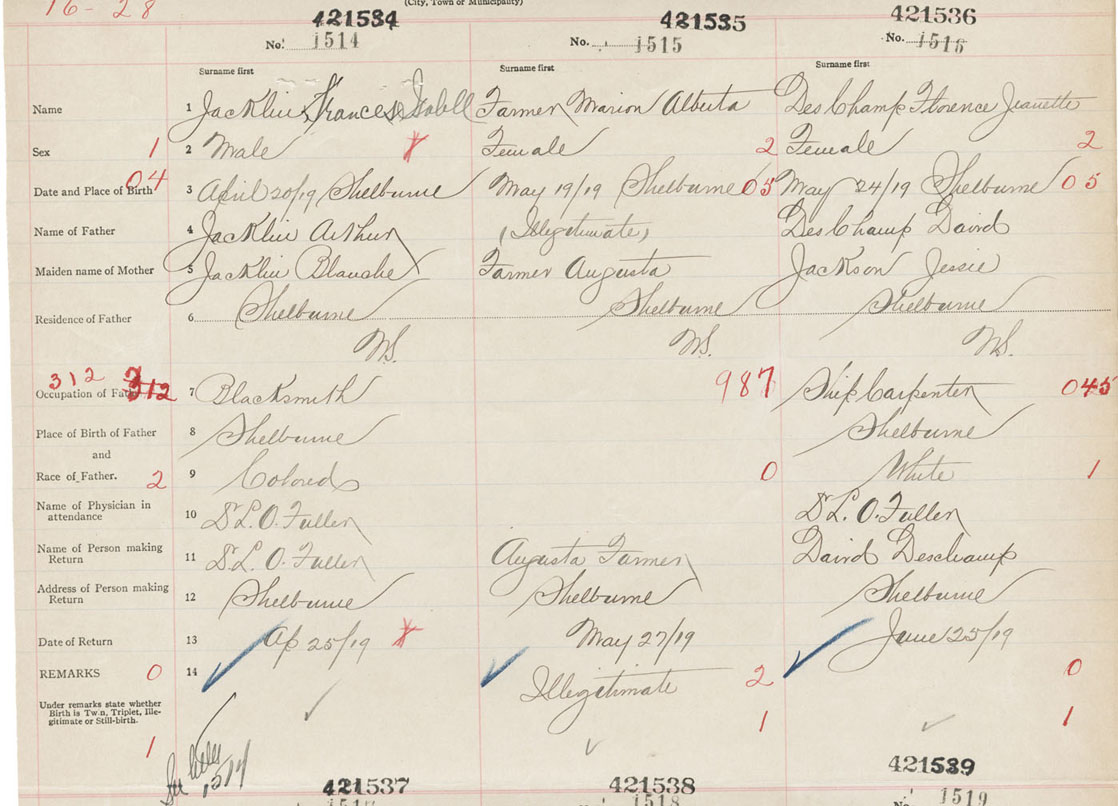 (City, Town or Municipality)
16-28
421534 421535 421536
No. 1514 No. 1515 No. 1516
Surname first Surname first Surname first
Name 1 Jacklin, Frances Isabell Farmer Marion Alberta DesChamp Florence Jeanette
Sex 1 2 Male X Female 2 Female 2
Date and Place of Birth 04 3 April 20/19 Shelburne May 19/19 Shelburne 05 May 24/19 Shelburne 05
Name of Father 4 Jacklin Arthur (Illegitimate) DesChamp David
Maiden name of Mother 5 Jacklin Blanche Farmer Augusta Jackson Jessie
Residence of Father 6 Shelburne Shelburne Shelburne
N.S. N.S. N.S.
312 312
Occupation of Father 7 Blacksmith 987 Ship Carpenter 045
Place of Birth of Father 8 Shelburne Shelburne
and
Race of Father. 2 9 Colored 0 White 1
Name of Physician in
attendance 10 Dr L. O. Fuller Dr L. O. Fuller
Name of Person making
Return 11 Dr L. O. Fuller Augusta Farmer David Deschamp
Address of Person making
Return 12 Shelburne Shelburne Shelburne
Date of Return 13 Ap 25/19 X May 27/19 June 25/19
REMARKS 0 14 Illegitimate 2 0
Under remarks state whether
Birth is Twin, Triplet, Ille-
gitimate or Still-birth.
1 1 1
See
1514
421537 421538 421539
1518 No. 1519